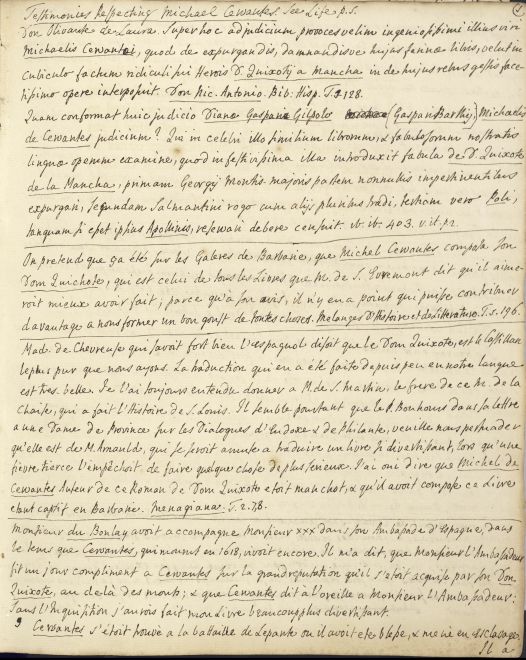 Testimonies Respecting Michael Cervantes. See Life. p.5.
Don Olivante de Laura. Super hoc ad judicium provoces velim ingeniosissimi illius viri
Michaelis Cervantei, quod de expurgandis, damnandisve hujus farinæ libris, velut in
cubiculo factum ridiculi sui Herois D. Quixoty a Mancha in de hujus rebus gestis face-
tissimo opere interposuit. Don Nic. Antonio. Bib: Hisp. T. 128.
Quam conformat huic judicio Dianæ Gasparis Gilpolo (Gaspari Barthij) Michaelis
de Cervantes judicium? Qui in celebri illo similium librorum, & fabulosorum nostratis
linguæ operum examine, quod in festivissima illa introduxit fabula de D. Quixote
de la Mancha, primam Georgij Montis-majoris partem nonnullis impertinentibus
expurgari, secundam Salmantini rogo cum alijs pluribus tradi, tertiam vero Poli,
tanquam si esset ipsius Apollinis, reservari debere censuit. ib. ib. 403.
On pretend que ça été sur les Galeres de Barbarie, que Michel Cervantes composa son
Dom Quichote, qui est celui de tous les Livres que M. de S. Evremont dit qu'il aime-
roit mieux avoir fait; parce qu'à son avis, il n'y en a point qui puisse contribuer
davantage a nous former un bon goust de toutes choses. Melanges d'Histoire et de Litterature. T.1. 196.
Mad. de Chevreuse qui savoit fort bien l'espagnol disoit que le Dom Quixote, est le Castillan
le plus pur que nous ayons. La traduction qui en a été faite depuis peu en notre langue
est tres belle. Je l'ai toujours entendu donner a M. de S. Martin, le frere de ce M. de la
Chaise, qui a fait l'Histoire de S. Louis. Il semble pourtant que le P. Bouhours dans sa lettre
a une Dame de Province sur les Dialogues d'Eudoxe & de Philante, veuille nous persuader
qu'elle est de M. Arnauld, qui se seroit amusé a traduire un livre si divertissant, lors qu'une
fievre tierce l'empêchoit de faire quelque chose de plus serieux. J'ai oui dire que Michel de
Cervantes Auteur de ce Roman de Dom Quixote etoit manchot, & qu'il avoit composé ce Livre
etant captif en Barbarie. Menagiana. T.2. 78.
Monsieur du Boulay avoit accompagné Monsieur xxx dans son Ambassade d'Espagne, dans
le tems que Cervantes, qui mourut en 1618, vivoit encore. Il m'a dit, que Monsieur l'Ambassadeur
fit un jour compliment a Cervantes sur la grande reputation qu'il s'etoit acquise par son Don
Quixote, au dela des monts; & que Cervantes dit à l'oreille a Monsieur l'Ambassadeur:
Sans l'Inquisition j'aurois fait mon Livre beaucoup plus divertissant.
Cervantes s'étoit trouvé a la battaille de Lepante ou il avoit eté blessé, & mené en esclavage.
Il a